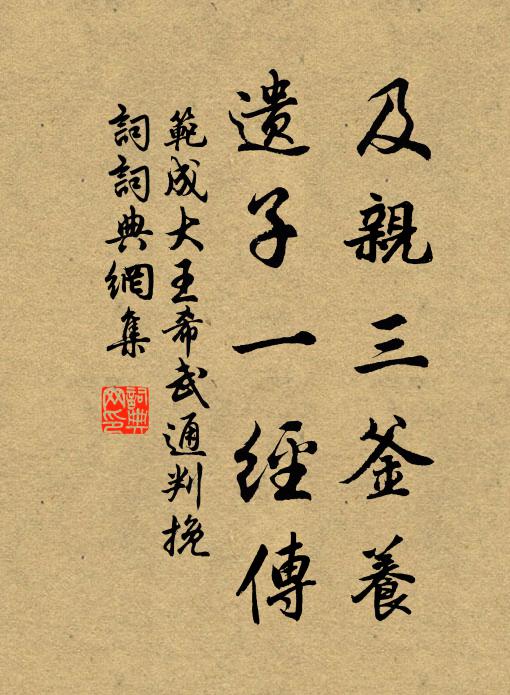 及親三釜養
遺子一經傳
範成大王希武通判挽
詞詞典網集
詞典网印